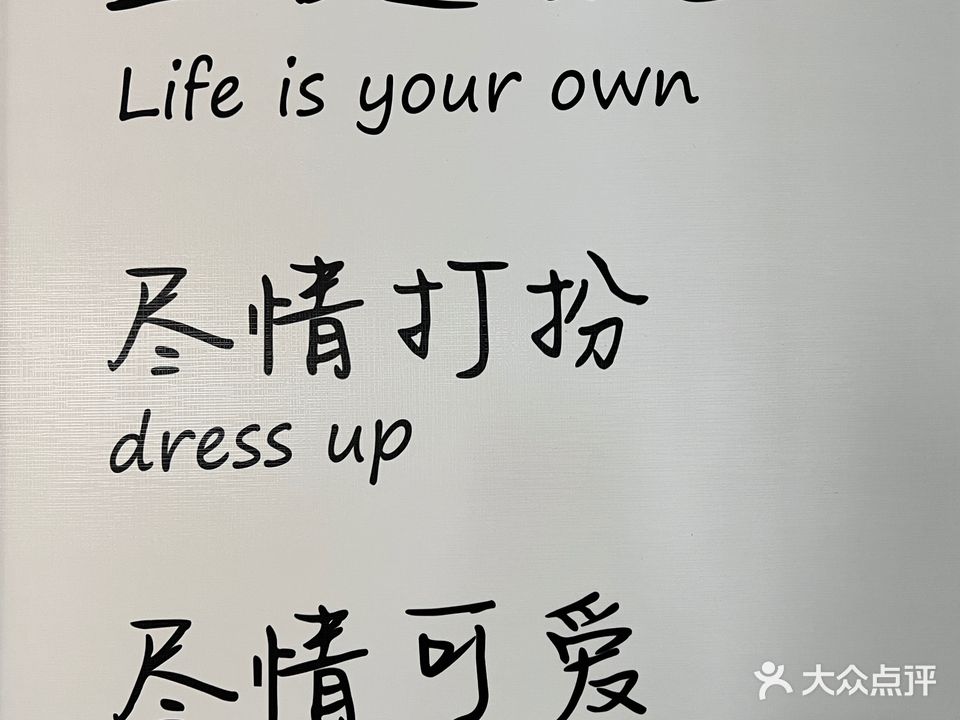 Life is your own
尽情打扮
dress up
尽情可爱
大众点评